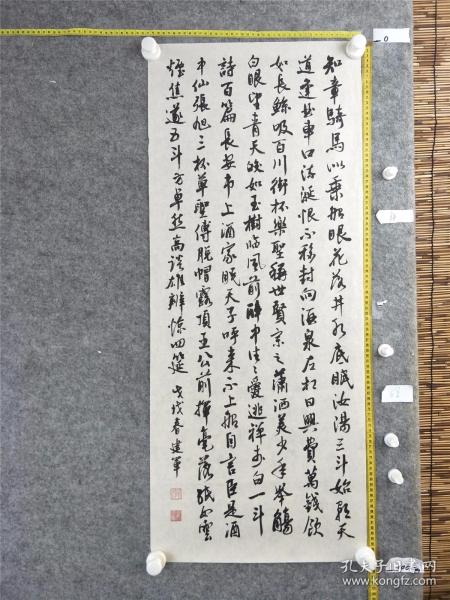 知章騎馬似乘船眼花落井水底眠汝陽三斗始朝天
道逢麴車口流涎恨不移封向酒泉左相日興費萬錢飲
如長鯨吸百川銜杯樂聖稱世賢宗之瀟洒美少年舉觴
白眼望青天皎如玉樹臨風前醉中往〻愛逃禪李白一斗
詩百篇長安市上酒家眠天子呼來不上船自言臣是酒
中仙張旭三杯草聖傳脫帽露頂王公前揮毫落紙如雲
煙焦遂五斗方卓然高談雄辯驚四筵 戊戌春建軍
孔夫子旧书网